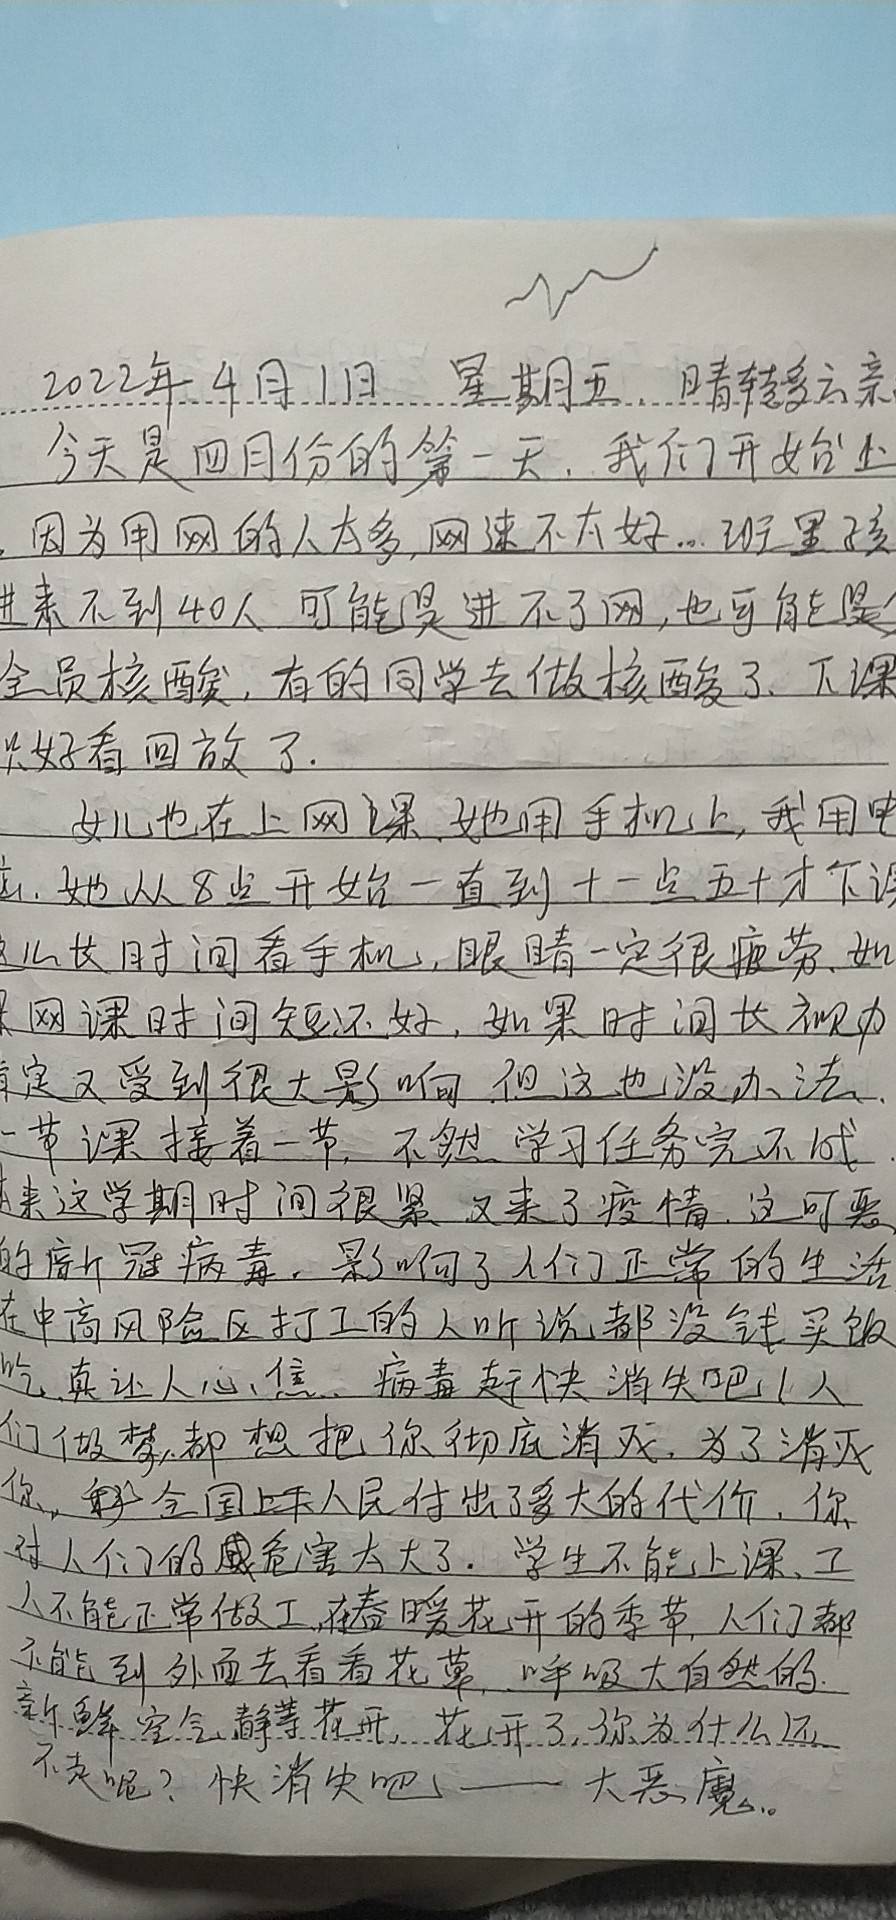 2022年4月1日 星期五. 晴转多云
今天是四月份的第一天. 我们开始上
因为用网的人太多,网速不太好...班里孩
进来不到40人 可能是进不了网,也可能是
全员核酸,有的同学去做核酸了、下课
只好看回放了.
女儿也在上网课.她用手机上,我用电
.她从8点开始一直到十一点五十才下课
这么长时间看手机,眼睛一定很疲劳.如
果网课时间短还好,如果时间长视力
肯定又受到很大影响.但这也没办法.
一节课接着一节,不然学习任务完不成.
本来这学期时间很紧又来了疫情.这可恶
的新冠病毒.影响了人们正常的生活
在中高风险区打工的人听说都没钱买饭
吃.真让人心焦. 病毒赶快消失吧!人
们做梦都想把你彻底消灭.为了消灭
你, 全国人民付出了多大的代价.你
对人们的危害太大了.学生不能上课、工
人不能正常做工,在春暖花开的季节,人们都
不能到外面去看看花草,呼吸大自然的
新鲜空气静等花开,花开了,你为什么还
不走呢?快消失吧——大恶魔。